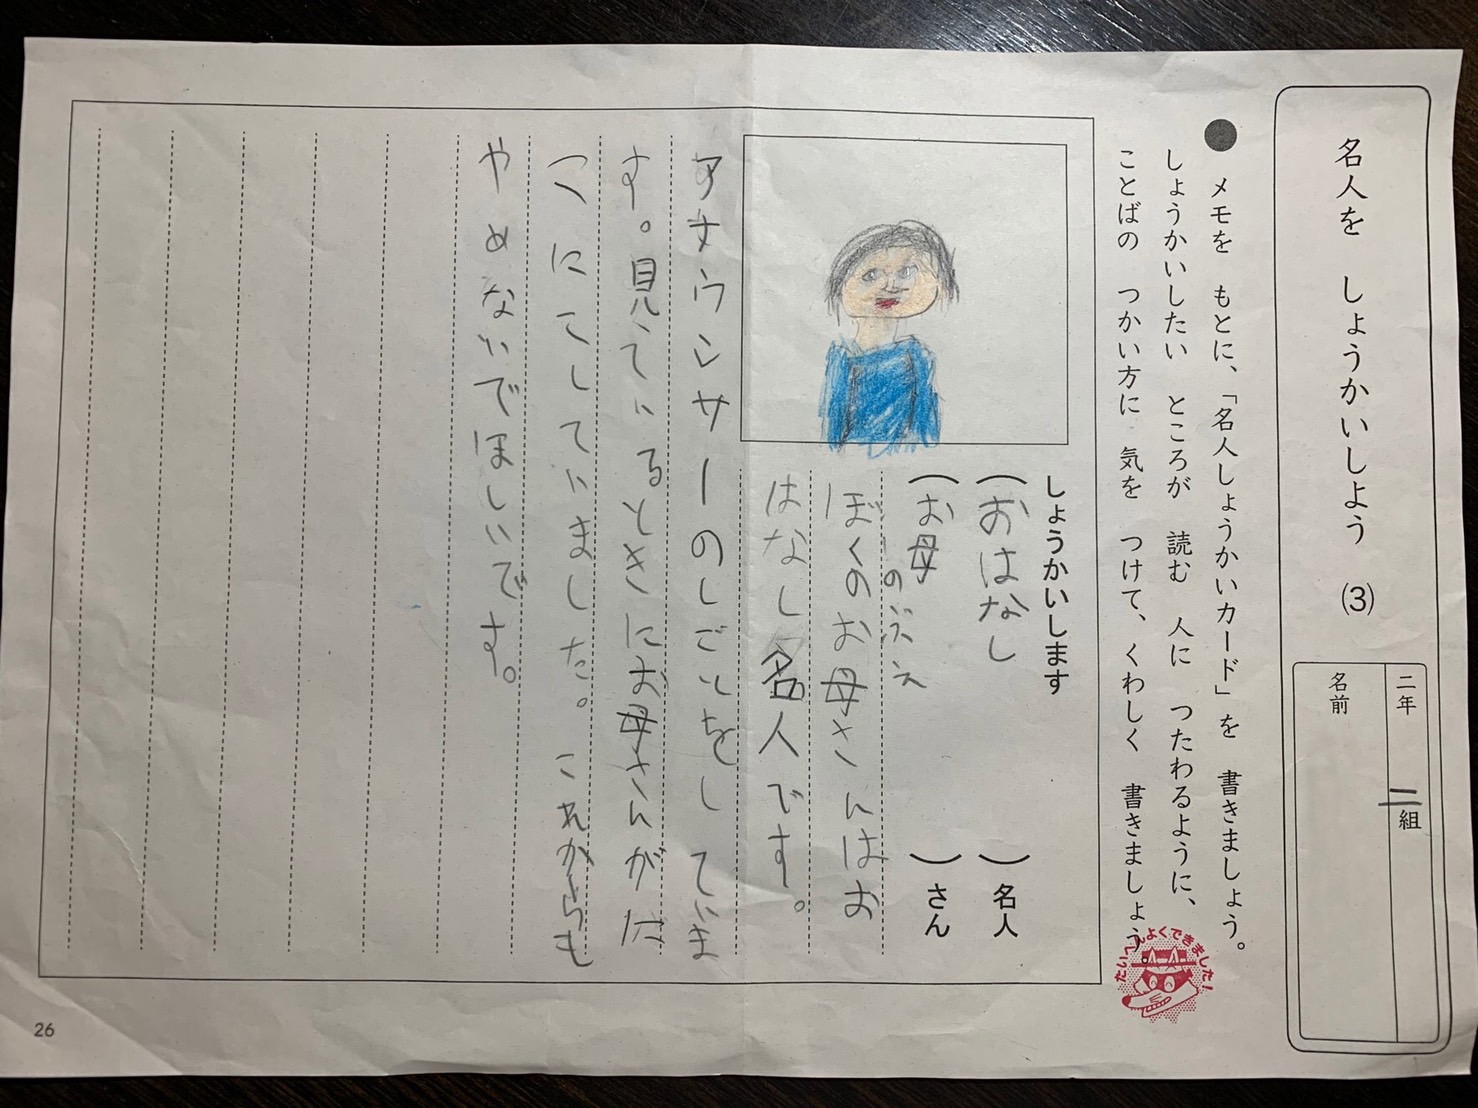 名人を しょうかいしよう (3)
二年 二組
名前
● メモを もとに、「名人しょうかいカード」を 書きましょう。
しょうかいしたい ところが 読む 人に つたわるように、
ことばの つかい方に 気を つけて、くわしく 書きましょう。
たいへんよくできました!
しょうかいします
(おはなし)名人
(お母)さん
ぼくのお母さんはお
はなし名人です。
アナウンサーのしごとをしていま
す。見ているときにお母さんがに
こにこしていました。これからも
やめないでほしいです。
26